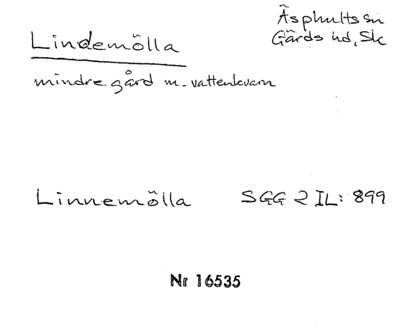 Lindemölla
Äsphults sn
Gärds hd, Sk
mindre gård m. vattenkvarn
Linnemölla SGG 2 IL: 899
Nr 16535